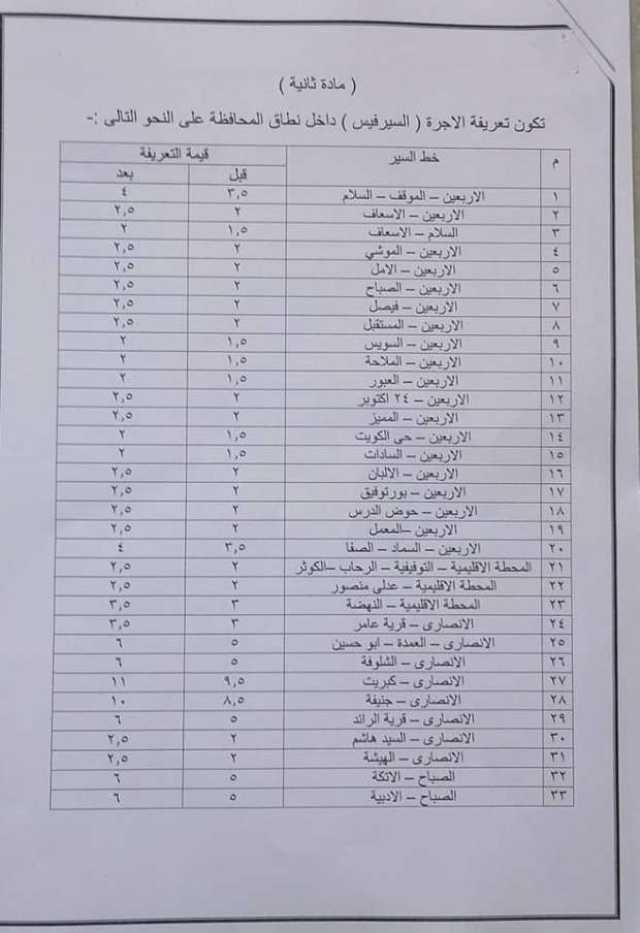 ( مادة ثانية )
تكون تعريفة الاجرة ( السيرفيس ) داخل نطاق المحافظة على النحو التالى :-
م خط السير قيمة التعريفة
قبل بعد
١ الاربعين – الموقف – السلام ٣,٥ ٤
٢ الاربعين – الاسعاف ٢ ٢,٥
٣ السلام – الاسعاف ١,٥ ٢
٤ الاربعين – الموشي ٢ ٢,٥
٥ الاربعين – الامل ٢ ٢,٥
٦ الاربعين – الصباح ٢ ٢,٥
٧ الاربعين – فيصل ٢ ٢,٥
٨ الاربعين – المستقبل ٢ ٢,٥
٩ الاربعين – السويس ١,٥ ٢
١٠ الاربعين – الملاحة ١,٥ ٢
١١ الاربعين – العبور ١,٥ ٢
١٢ الاربعين – ٢٤ اكتوبر ٢ ٢,٥
١٣ الاربعين – المميز ٢ ٢,٥
١٤ الاربعين – حى الكويت ١,٥ ٢
١٥ الاربعين – السادات ١,٥ ٢
١٦ الاربعين – الالبان ٢ ٢,٥
١٧ الاربعين – بورتوفيق ٢ ٢,٥
١٨ الاربعين – حوض الدرس ٢ ٢,٥
١٩ الاربعين –المعمل ٢ ٢,٥
٢٠ الاربعين – السماد – الصفا ٣,٥ ٤
٢١ المحطة الاقليمية – التوفيقية – الرحاب –الكوثر ٢ ٢,٥
٢٢ المحطة الاقليمية – عدلي منصور ٢ ٢,٥
٢٣ المحطة الاقليمية – النهضة ٣ ٣,٥
٢٤ الانصارى – قرية عامر ٣ ٣,٥
٢٥ الانصارى – العمدة – ابو حسين ٥ ٦
٢٦ الانصارى – الشلوفة ٥ ٦
٢٧ الانصارى – كبريت ٩,٥ ١١
٢٨ الانصارى – جنيفة ٨,٥ ١٠
٢٩ الانصارى – قرية الرائد ٥ ٦
٣٠ الانصارى – السيد هاشم ٢ ٢,٥
٣١ الانصارى – الهيشة ٢ ٢,٥
٣٢ الصباح – الاتكة ٥ ٦
٣٣ الصباح – الادبية ٥ ٦